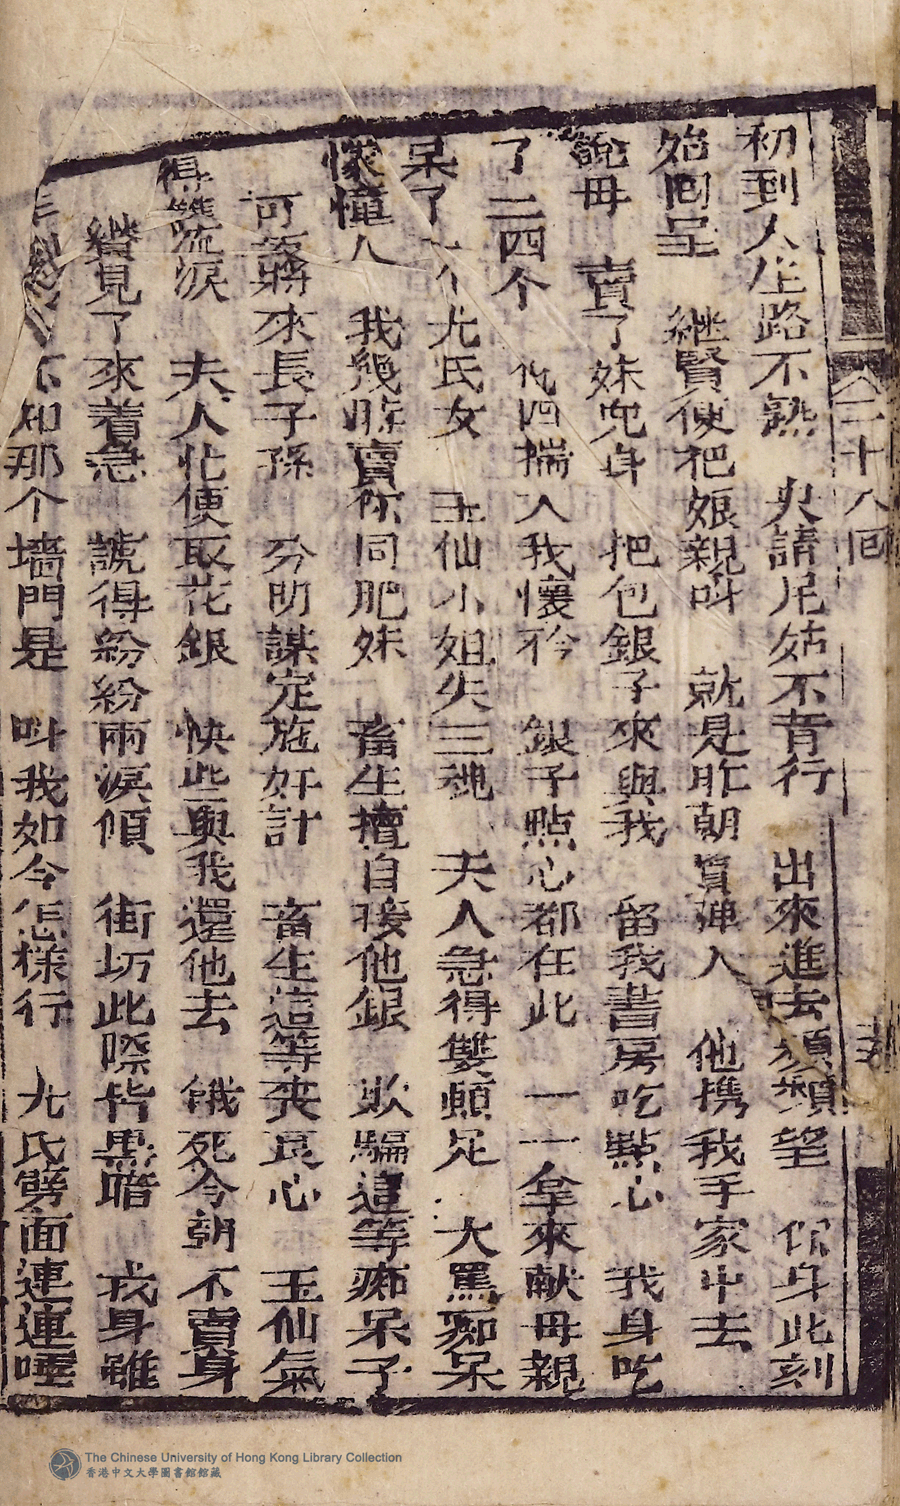 二十八囘
初到人生路不熟　央請尼姑不肯行　出來進去頻頻望　你身此刻
始囘呈　繼賢便把娘親叫　就是昨朝買弹人　他携我手家中去
說毋　賣了妹兜身　把包銀子來與我　留我書房吃點心　我身吃
了二四个　伲四揣入我懷衿　銀子點心都在此　一一拿來献毋親
呆了一个尤氏女　玉仙小姐失三魂　夫人急得雙頓足　大罵痴呆
懞憧人　我幾時賣你同肥妹　畜生擅自接他銀　欺騙這等痴呆子
可藐蔣來長子孫　分明謀定施奸計　畜生這等丧良心　玉仙氣
得雙流淚　夫人忙便取花銀　快些與我還他去　餓死今朝不賣身
繼見了來着急　諕得紛紛兩淚傾　街坊此際皆黑暗　我身雖
不知那个墻門是　叫我如今怎樣行　尤氏劈面連連唾
The Chinese University of Hong Kong Library Collection
香港中文大學圖書館館藏